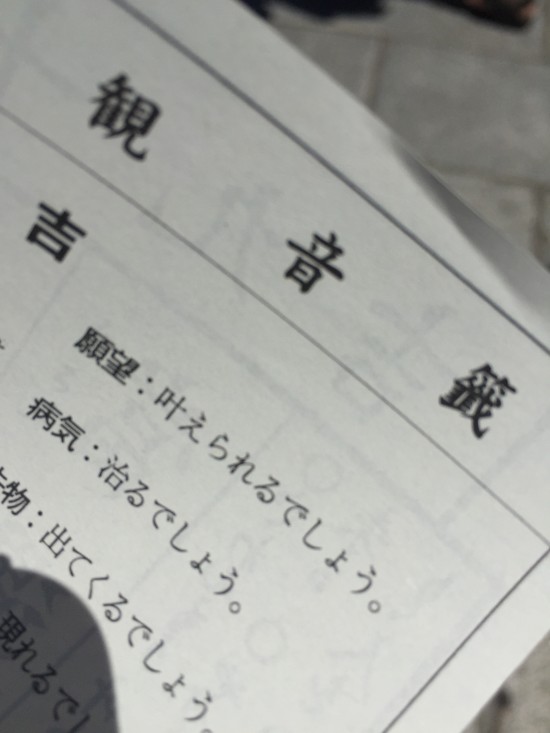 観音籤
吉
願望：叶えられるでしょう。
病気：治るでしょう。
物：出てくるでしょう。
現れるでし